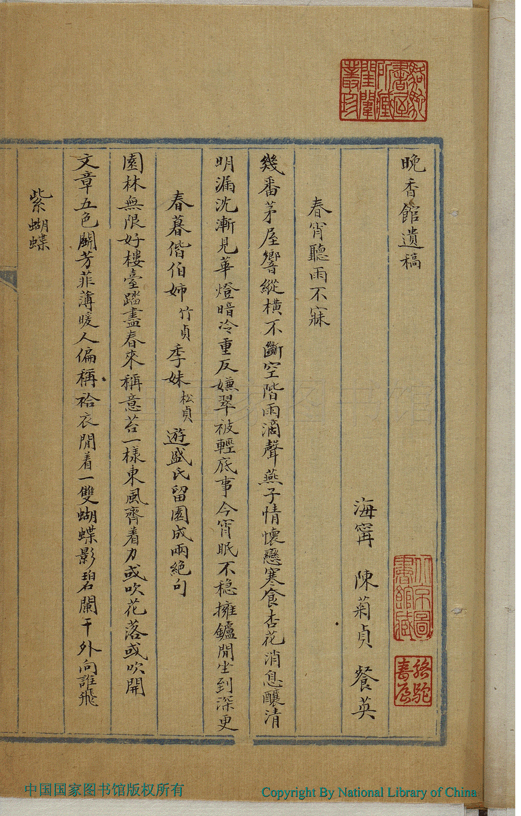 晚香館遺稿
海甯 陳菊貞 餐英
春宵聽雨不寐
幾番茅屋響縱橫不斷空階雨滴聲燕子情懷戀寒食杏花消息釀清
明漏沈漸見華燈暗冷重反嫌翠被輕底事今宵眠不稳擁鑪閒坐到深更
春暮偕伯姊竹貞季妹松貞遊盛氏留園成兩絕句
園林無限好樓臺踏盡春來稱意苔一樣東風齊着力或吹花落或吹開
文章五色鬭芳菲薄暖人偏稱袷衣閒看一雙蝴蝶影碧闌干外向誰飛
紫蝴蝶
北京圖書館藏
中国国家图书馆版权所有
Copyright By National Library of China